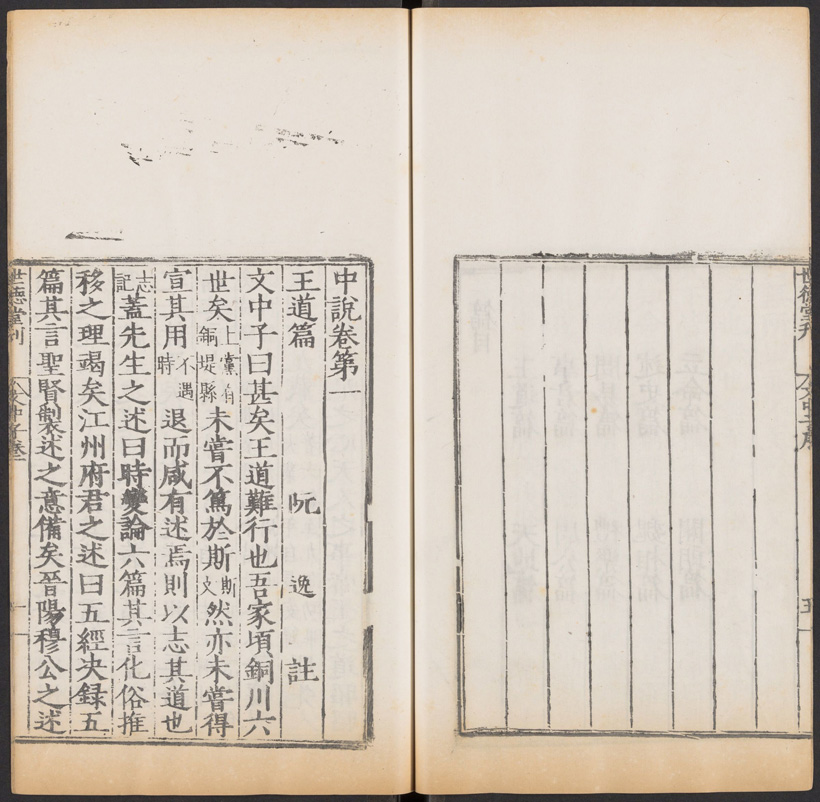 世德堂刊
五
中說卷第一
王道篇 阮 逸 註
文中子曰甚矣王道難行也吾家頃銅川六
世矣上黨有銅堤縣未嘗不篤於斯斯文然亦未嘗得
宣其用不遇時退而咸有述焉則以志其道也
志記蓋先生之述曰時變論六篇其言化俗推
移之理竭矣江州府君之述曰五經决録五
篇其言聖賢製述之意備矣晉陽穆公之述
世德堂刊
文中子卷一
一